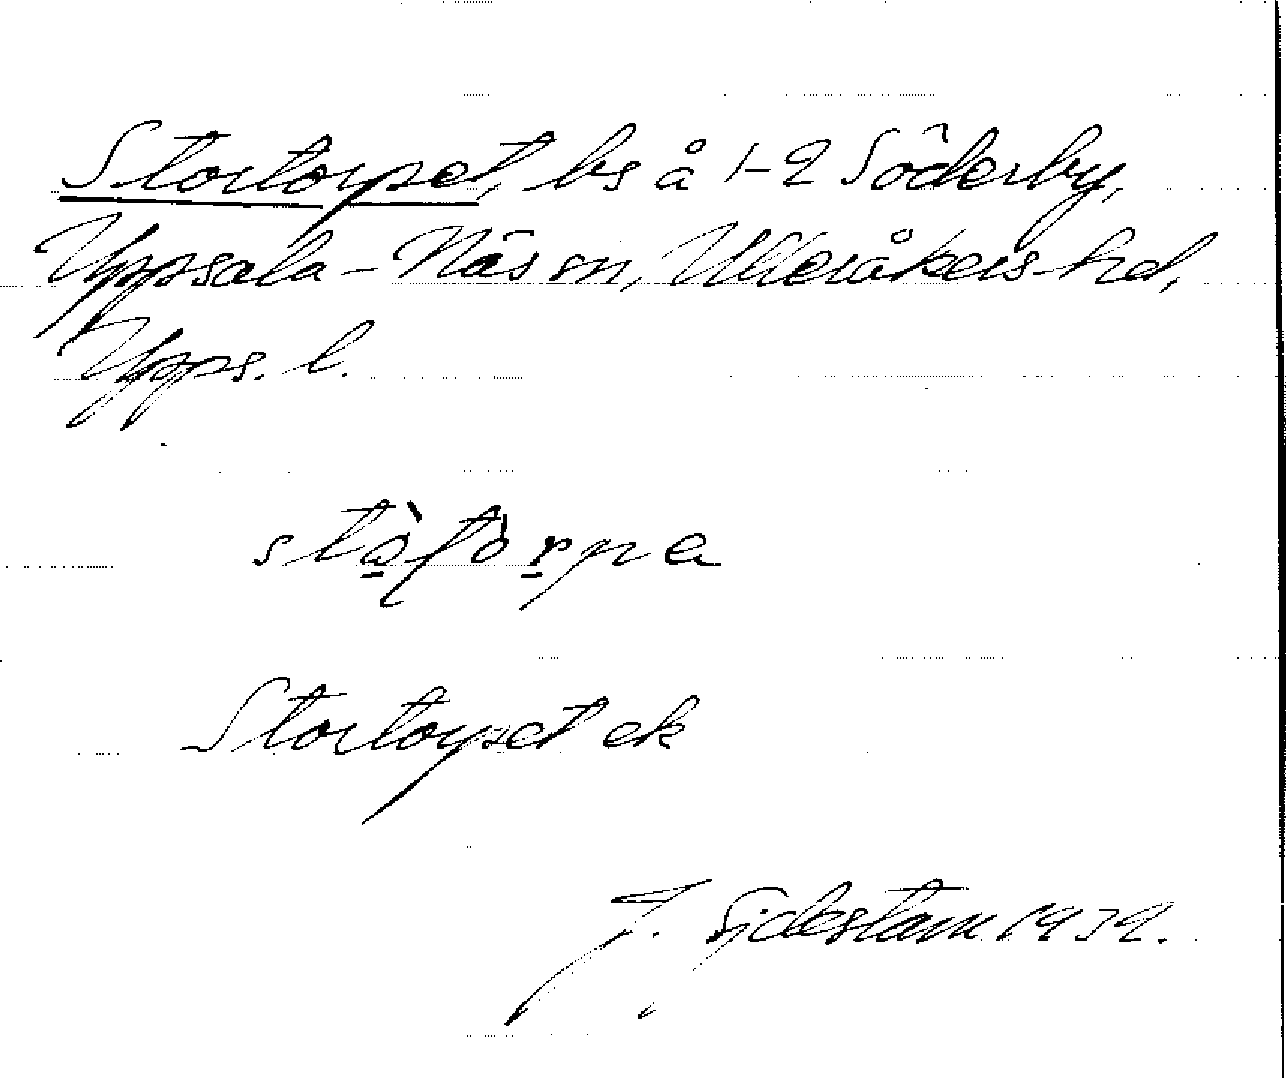 Stortorpet, bs å 1-2 Söderby,
Uppsala-Näs sn, Ulleråkers hd,
Upps. l.
Stortorpet ek
J. Sidestam 1939.